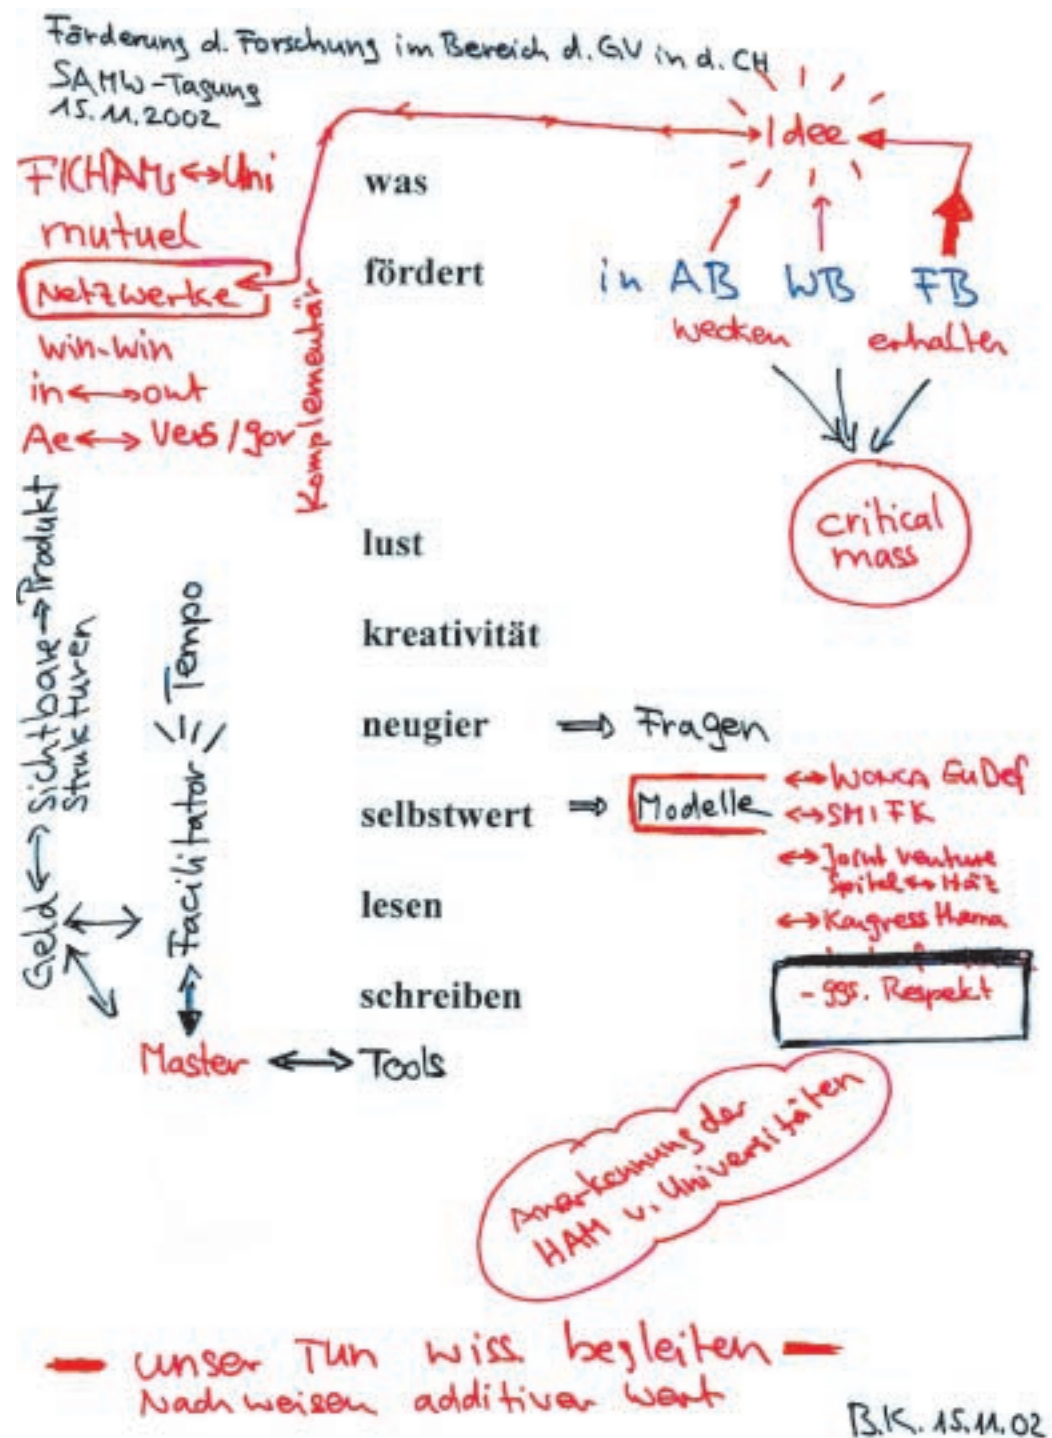 Förderung d. Forschung im Bereich d. GV in d. CH
SAMW-Tagung
15.11.2002
Idee
FICHAMs ↔ Uni
mutuel
Netzwerke
win-win
in ↔ out
Ae ↔ Vers / gov
Komplementär
was
fördert
in AB WB FB
wecken erhalten
critical
mass
lust
kreativität
neugier ⇒ Fragen
selbstwert ⇒ Modelle
lesen
schreiben
↔ WONCA EuDef
↔ SMIFK
↔ Joint venture
Spital ↔ HAZ
↔ Kongress thema
- ggs. Respekt
Geld ↔ Sichtbare → Produkt
Strukturen
Facilitator
Tempo
Master ⇔ Tools
Anerkennung der
HAM v. Universitäten
unser Tun wiss. begleiten
Nachweisen additiver Wert
B.K. 15.11.02